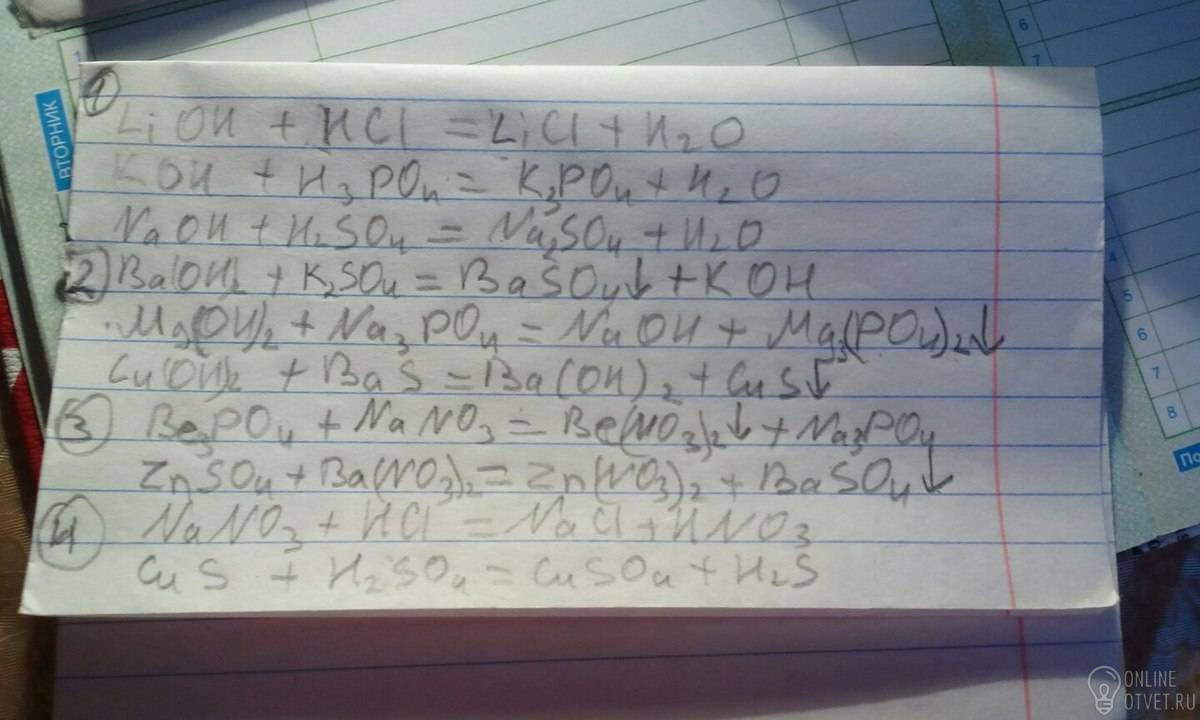 1
LiOH + HCl = LiCl + H2O
KOH + H3PO4 = K3PO4 + H2O
NaOH + H2SO4 = Na2SO4 + H2O
2 Ba(OH)2 + K2SO4 = BaSO4↓ + KOH
Mg(OH)2 + Na3PO4 = NaOH + Mg3(PO4)2↓
Cu(OH)2 + BaS = Ba(OH)2 + CuS↓
3 Be3PO4 + NaNO3 = Be(NO3)2↓ + Na3PO4
ZnSO4 + Ba(NO3)2 = Zn(NO3)2 + BaSO4↓
4 NaNO3 + HCl = NaCl + HNO3
CuS + H2SO4 = CuSO4 + H2S
ВТОРНИК
1
6
7
4
5
6
7
8
По
ONLINE
OTVET.RU